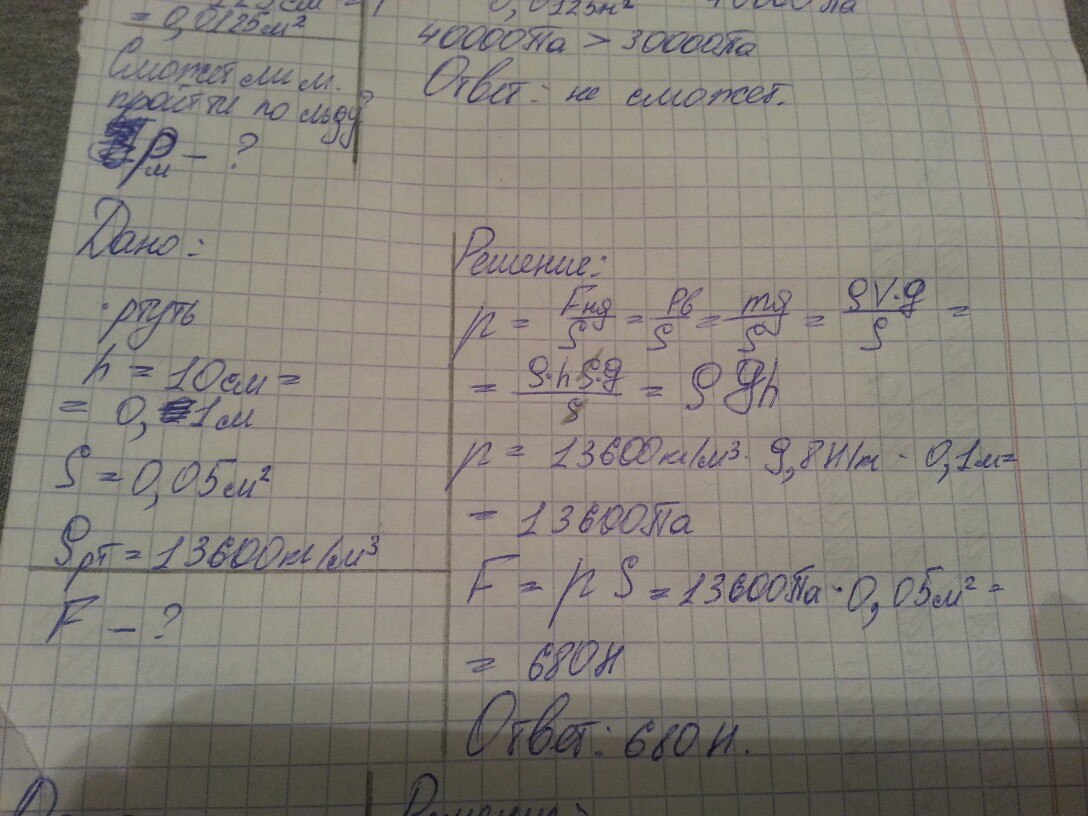 = 0,0125м²
Сможет ли м.
пройти по льду?
pм - ?
0,0125м²
40000Па > 30000Па
Ответ: не сможет.
Дано:
ртуть
h = 10см =
= 0,1м
S = 0,05м²
ρрт = 13600кг/м³
F - ?
Решение:
p = Fнд/S = Pв/S = mg/S = ρV·g/S =
= ρ·h·S·g/S = ρgh
p = 13600кг/м³ · 9,8Н/кг · 0,1м =
= 13600Па
F = pS = 13600Па · 0,05м² =
= 680Н
Ответ: 680Н.